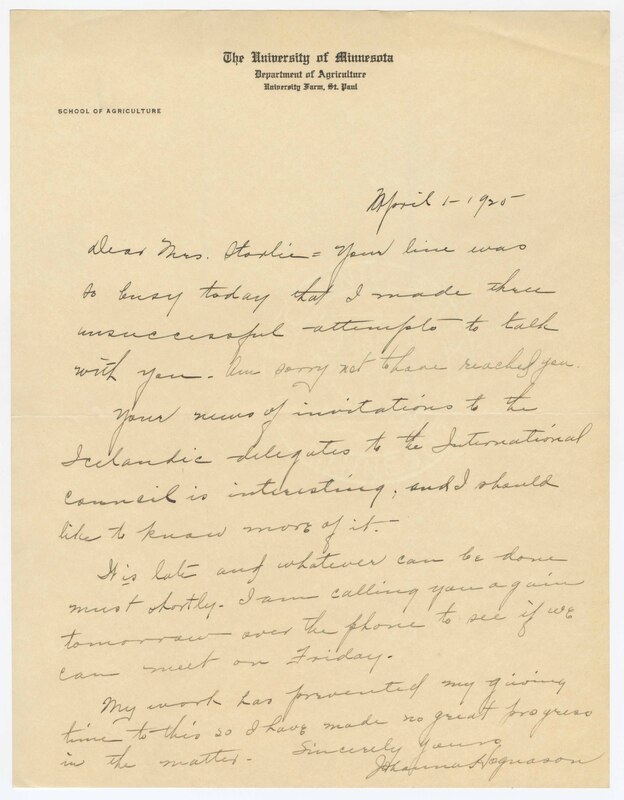 The University of Minnesota
Department of Agriculture
University Farm, St. Paul
SCHOOL OF AGRICULTURE
April 1 - 1925
Dear Mrs. Storlie = Your line was
so busy today that I made three
unsuccessful attempts to talk
with you. Am sorry not to have reached you.
Your news of invitations to the
Icelandic delegates to the International
Council is interesting, and I should
like to know more of it. -
It is late and whatever can be done
must shortly - I am calling you again
tomorrow over the phone to see if we
can meet on Friday.
My work has prevented my giving
time to this so I have made no great progress
in the matter. Sincerely yours
Johanna Hognason